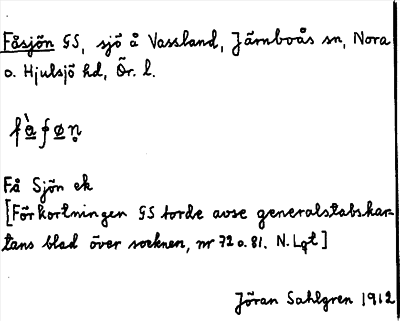 Fåsjön GS, sjö å Vassland, Järnboås sn, Nora
o. Hjulsjö hd, Ör. l.
Få Sjön ek
[Förkortningen GS torde avse generalstabskar-
tans blad över socknen, nr 72 o. 81. N. Lgt]
Jöran Sahlgren 1912